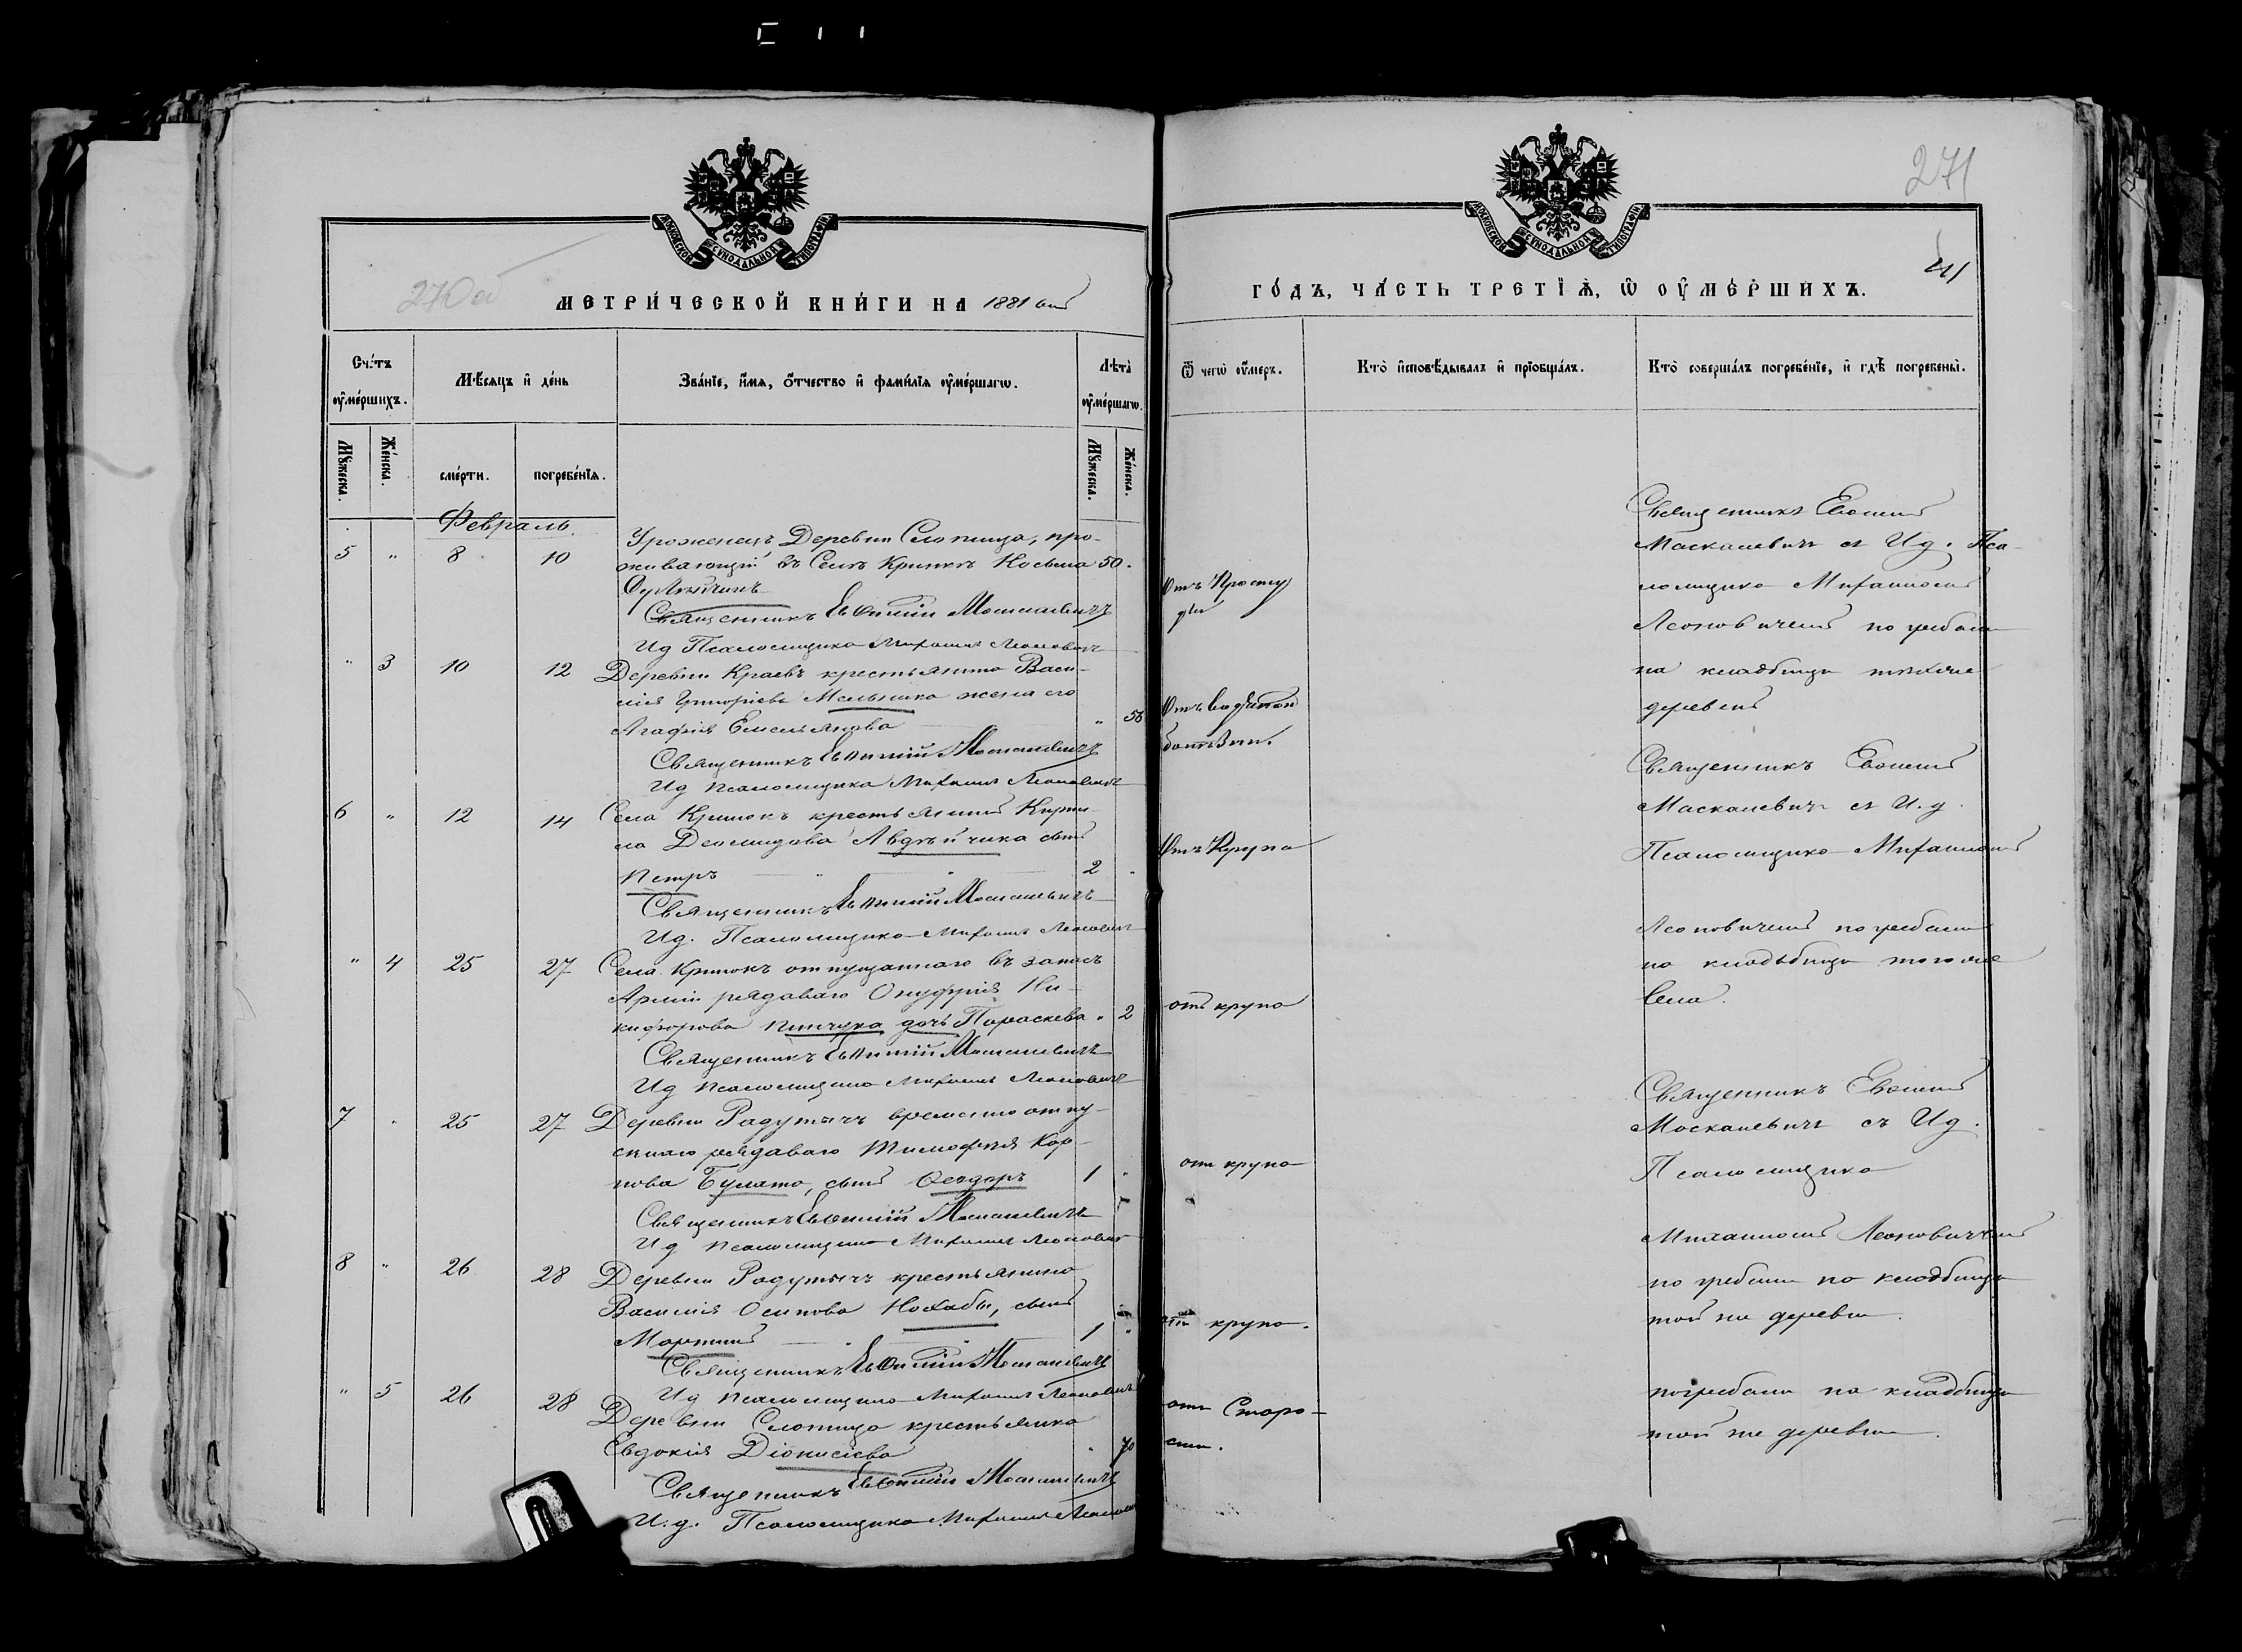 МОСКОВСКОЙ СѴНОДАЛЬНОЙ ТИПОГРАФІИ
270 об
МЕТРИ́ЧЕСКОЙ КНИ́ГИ НА 1881 ый
Сче́тъ ᲂу҆ме́ршихъ.
Мѣ́сяцъ и҆ де́нь
Зва́нїе, и҆́мѧ, ѻ҆́тчество и҆ фами́лїѧ ᲂу҆ме́ршагѡ.
Лѣ́та ᲂу҆ме́ршагѡ.
Мꙋ́жеска.
Же́нска.
сме́рти.
погребе́нїѧ.
Мꙋ́жеска.
Же́нска.
Февраль
5 " 8 10 Уроженецъ Деревни Слонища, про-
живающій въ Селѣ Кринкѣ Косьма 50.
Священникъ Евѳимій Маскалевичъ
Ид Псаломщика Михаилъ Леоновичъ
" 3 10 12 Деревни Краевъ крестьянина Васи-
лія Григорьева Мельника жена его
Агафія Емельянова " 56
Священникъ Евѳимій Маскалевичъ
Ид псаломщика Михаилъ Леоновичъ
6 " 12 14 Села Кринокъ крестьянина Кирил-
ла Деомидова Авдѣйчика сынъ
Петръ " 2
Священникъ Евѳимій Маскалевичъ
Ид. Псаломщика Михаилъ Леоновичъ
" 4 25 27 Села Кринокъ отпущаннаго въ запасъ
Арміи рядаваго Онуфрія Ни-
кифорова Пинчука дочь Параскева " 2
Священникъ Евѳимій Маскалевичъ
Ид псаломщика Михаилъ Леоновичъ
7 " 25 27 Деревни Радутичъ временно отпу-
скнаго рядаваго Тимофея Кар-
пова Булата, сынъ Ѳеодоръ 1 "
Священникъ Евѳимій Маскалевичъ
Ид псаломщика Михаилъ Леоновичъ
8 " 26 28 Деревни Радутичъ крестьянина
Василія Осипова сынъ
Мартинъ 1 "
Священникъ Евѳимій Маскалевичъ
Ид псаломщика Михаилъ Леоновичъ
" 5 26 28 Деревни Слонища крестьянка
Евдокія Діонисіева " 70
Священникъ Евѳимій Маскалевичъ
И.д. Псаломщика Михаилъ
МОСКОВСКОЙ СѴНОДАЛЬНОЙ ТИПОГРАФІИ
271
ГО́ДЪ, ЧА́СТЬ ТРЕТЇѦ, Ѡ҆ ОУ҆МЕ́РШИХЪ.
Ѿ чегѡ̀ ᲂу҆́меръ.
Кто̀ и҆сповѣ́дывалъ и҆ прїѡбща́лъ.
Кто̀ соверша́лъ погребе́нїе, и҆ гдѣ̀ погребены̀.
Отъ Просту
ды
болѣзни.
Отъ Крупа
отъ крупа
отъ крупа
отъ крупа.
отъ Старо-
сти.
Священникъ Евѳимій
Маскалевичъ съ Ид. Пса-
ломщика Михаиломъ
Леоновичемъ погребали
на кладбищѣ
деревень
Священникъ Евѳимій
Маскалевичъ съ И.д.
Псаломщика Михаиломъ
Леоновичемъ погребали
на кладьбищѣ того же
села.
Священникъ Евѳимій
Москалевичъ съ Ид.
Псаломщика
Михаиломъ Леоновичемъ
погребали на кладбищѣ
той же деревни.
погребали на кладбищѣ
той же деревни.